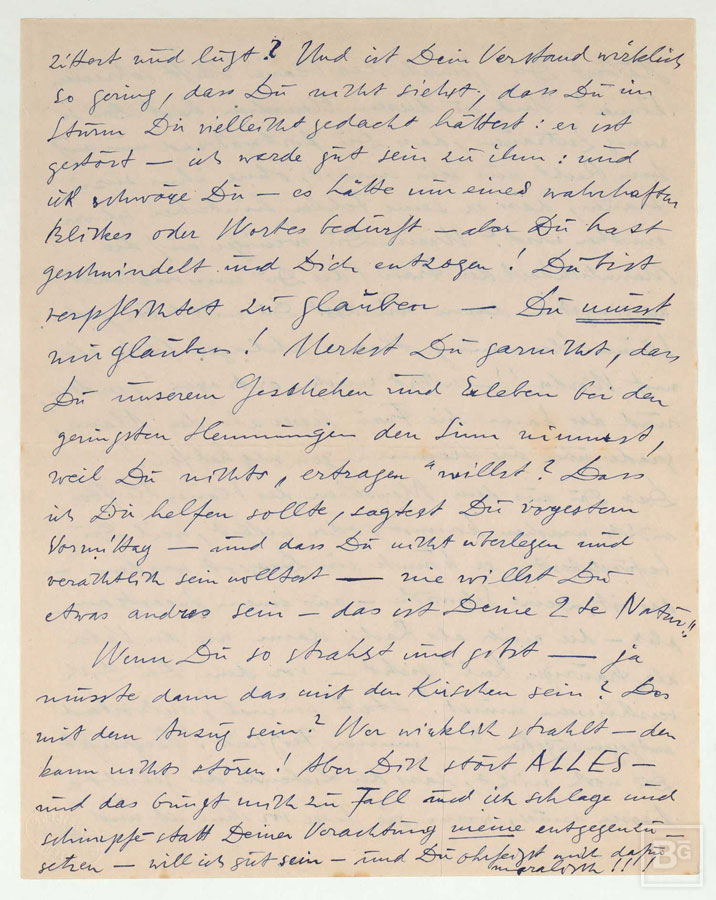 zittert und lügt? Und ist Dein Verstand wirklich
so gering, dass Du nicht siehst, dass Du im
Sturm Dir vielleicht gedacht hättest: er ist
gestört – ich werde gut sein zu ihm: und
ich schwöre Dir – es hätte nur eines wahrhaften
Blickes oder Wortes bedurft – aber Du hast
geschwindelt und Dich entzogen! Du bist
verpflichtet zu glauben – Du musst
mir glauben! Merkst Du garnicht, dass
Du unserem Geschehen und Erleben bei den
geringsten Hemmungen den Sinn nimmst,
weil Du nichts „ertragen" willst? Dass
ich Dir helfen sollte, sagtest Du vorgestern
Vormittag – und dass Du nicht überlegen und
verächtlich sein wolltest – nie willst Du
etwas andres sein – das ist Deine 2te Natur!!
Wenn Du so strahlst und gibst – ja
müsste dann das mit den Kirschen sein? Das
mit dem Anzug sein? Wer wirklich strahlt – den
kann nichts stören! Aber Dich stört ALLES –
und das bringt mich zu Fall und ich schlage und
schimpfe statt Deiner Verachtung meine entgegenzu-
setzen – will ich gut sein – und Du ohrfeigst mich dafür
moralisch!!!!
BG